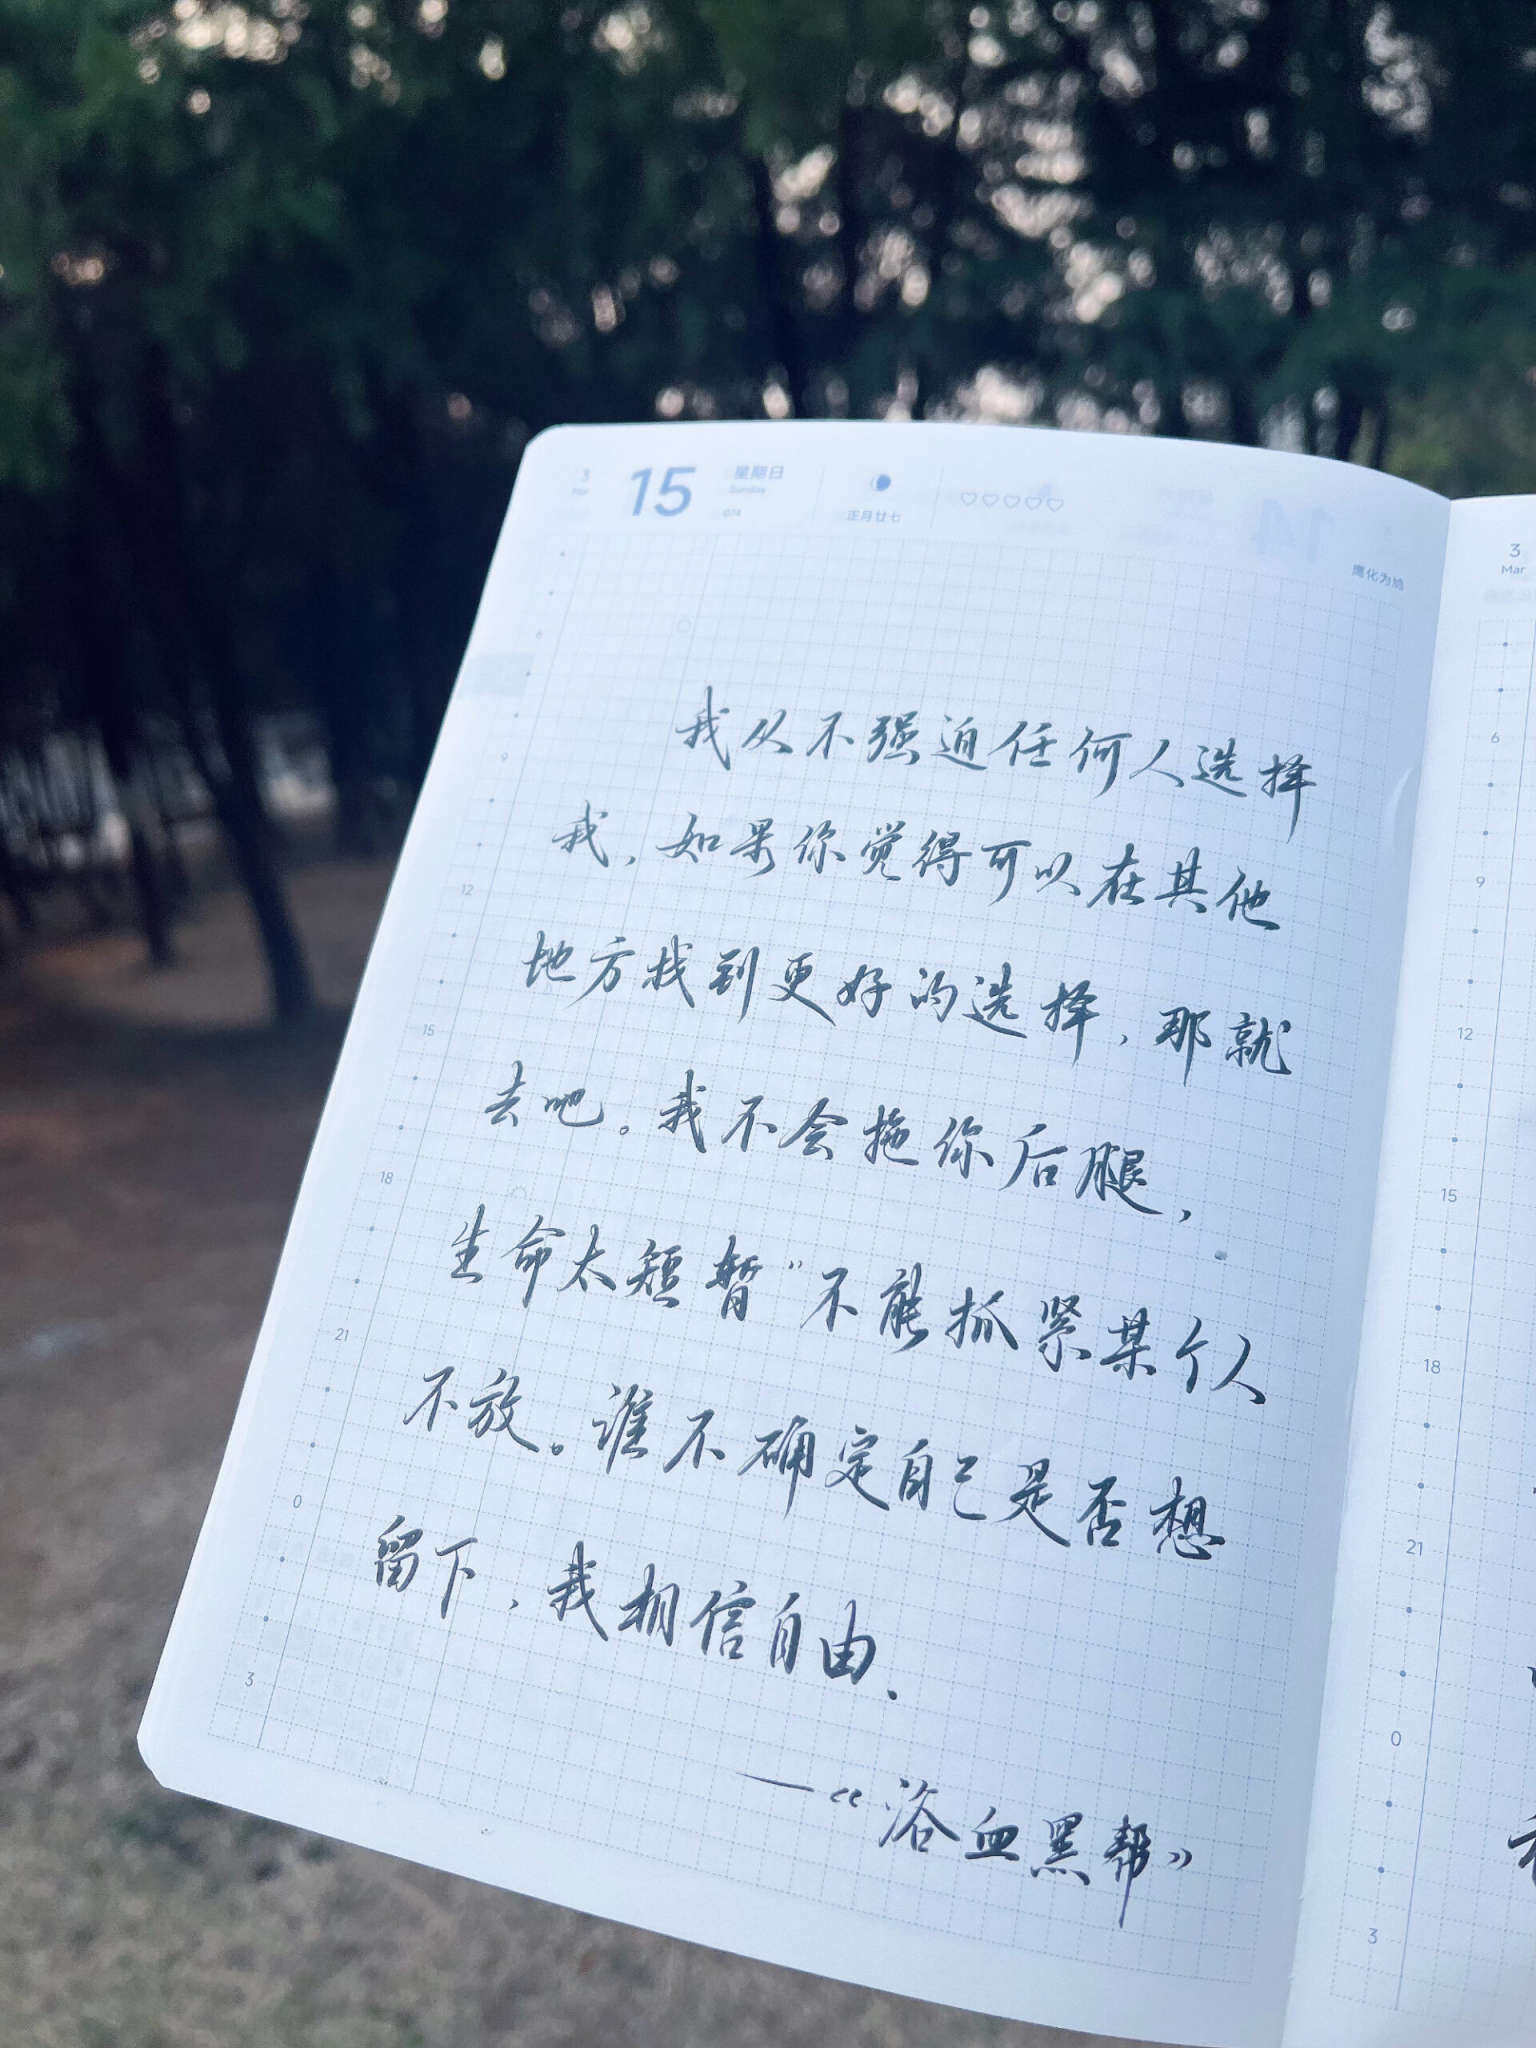 3 15 星期日 正月廿七
Mar Sunday
074
鹰化为鸠
我从不强迫任何人选择
我，如果你觉得可以在其他
地方找到更好的选择，那就
去吧。我不会拖你后腿，
生命太短暂"不能抓紧某个人
不放。谁不确定自己是否想
留下，我相信自由.
—《浴血黑帮》
6
9
12
15
18
21
0
3
3
Mar
6
9
12
15
18
21
0
3